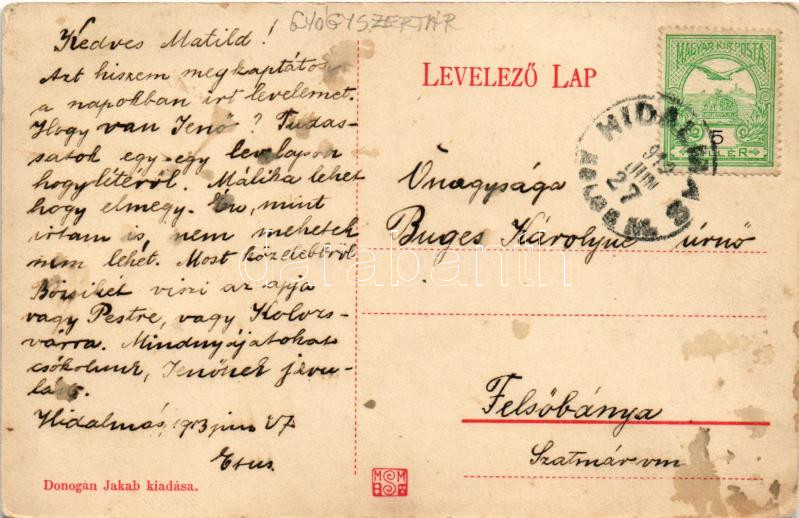 GYÓGYSZERTÁR
Kedves Matild!
Azt hiszem megkaptátok
a napokban irt levelemet.
Hogy van Jenő? Tudas-
satok egy-egy levlapon
hoglétéről. Málika lehet
hogy elmegy. Én, mint
irtam is, nem mehetek
nem lehet. Most közelebbről
Börsikét viszi az apja
vagy Pestre, vagy Kolozs-
várra. Mindnyájatokat
csókolunk, Jenőnek javu-
lást.
Hidalmás, 1913 jun 27
Etus.
Donogán Jakab kiadása.
LEVELEZŐ LAP
MAGYAR KIR. POSTA
5
HIDALMÁS
913 JUN
27
Önagysága
Buges Károlyné úrnő
Felsőbánya
Szatmár vm
MSM
databanth